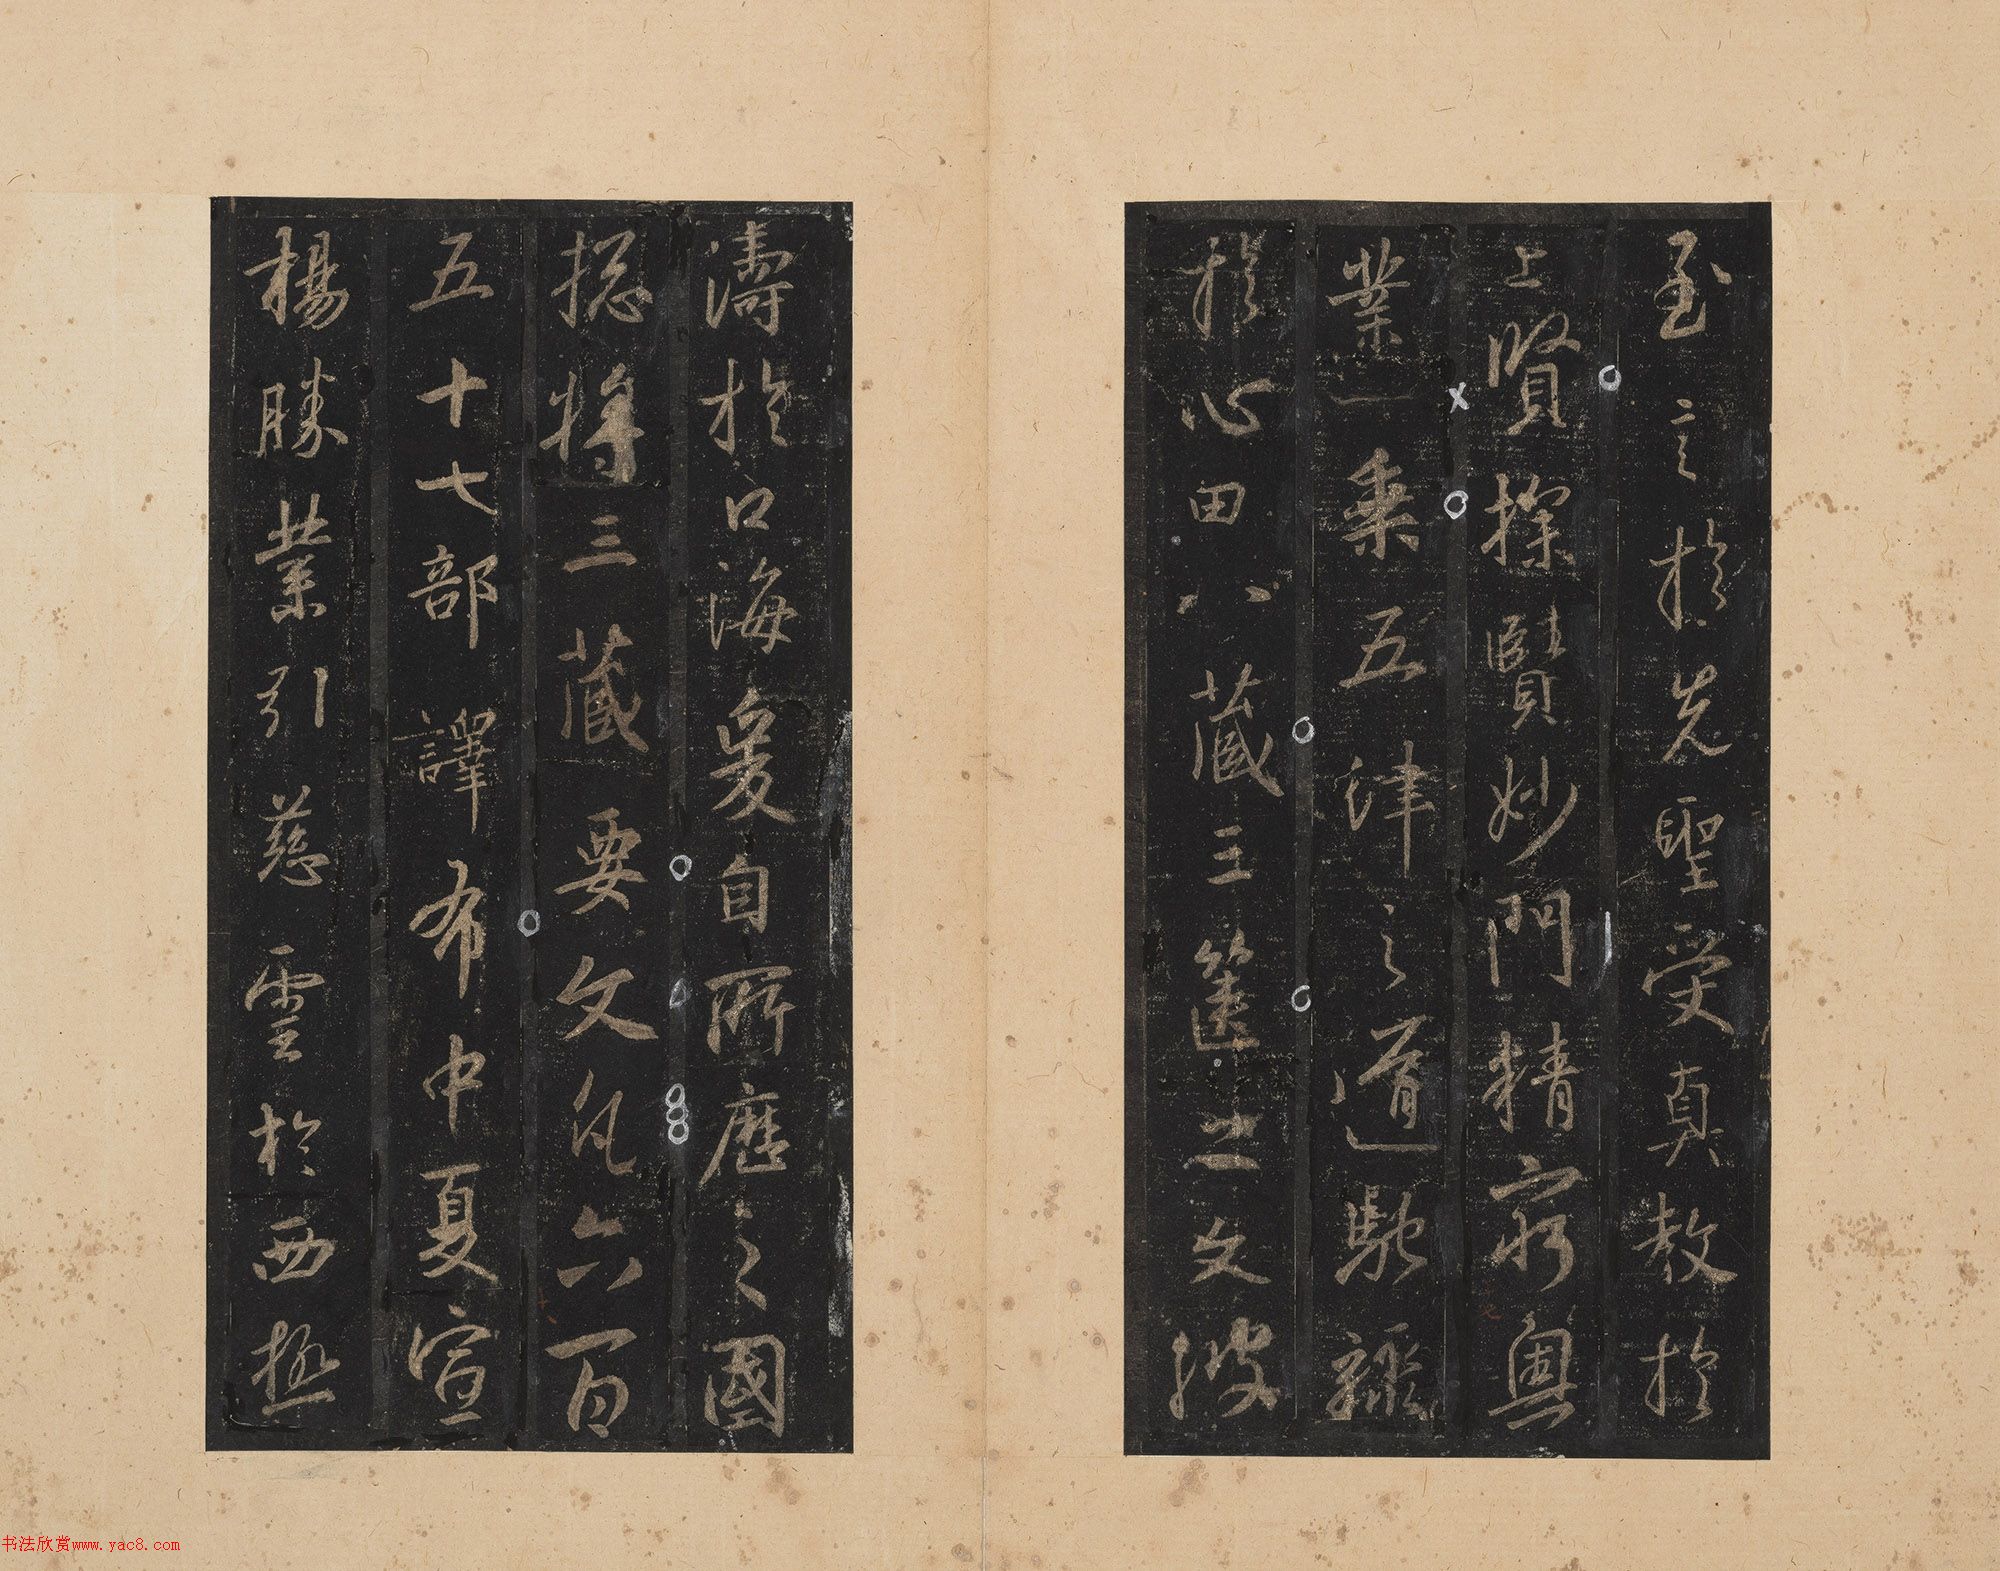 至言於先聖受真教於
上賢探賾妙門精窮奧
業一乘五津之道馳驟
於心田八藏三篋之文波
濤於口海爰自所歷之國
揔將三藏要文凡六百
五十七部譯布中夏宣
楊勝業引慈雲於西極
书法欣赏www.yac8.com